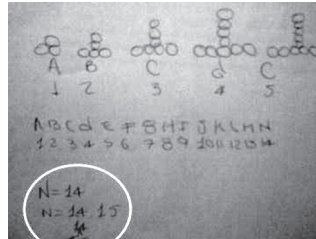 A B C d C
1 2 3 4 5
A B C d E F 8 H I J K L M N
1 2 3 4 5 6 7 8 9 10 11 12 13 14
N=14
N=14.15
14